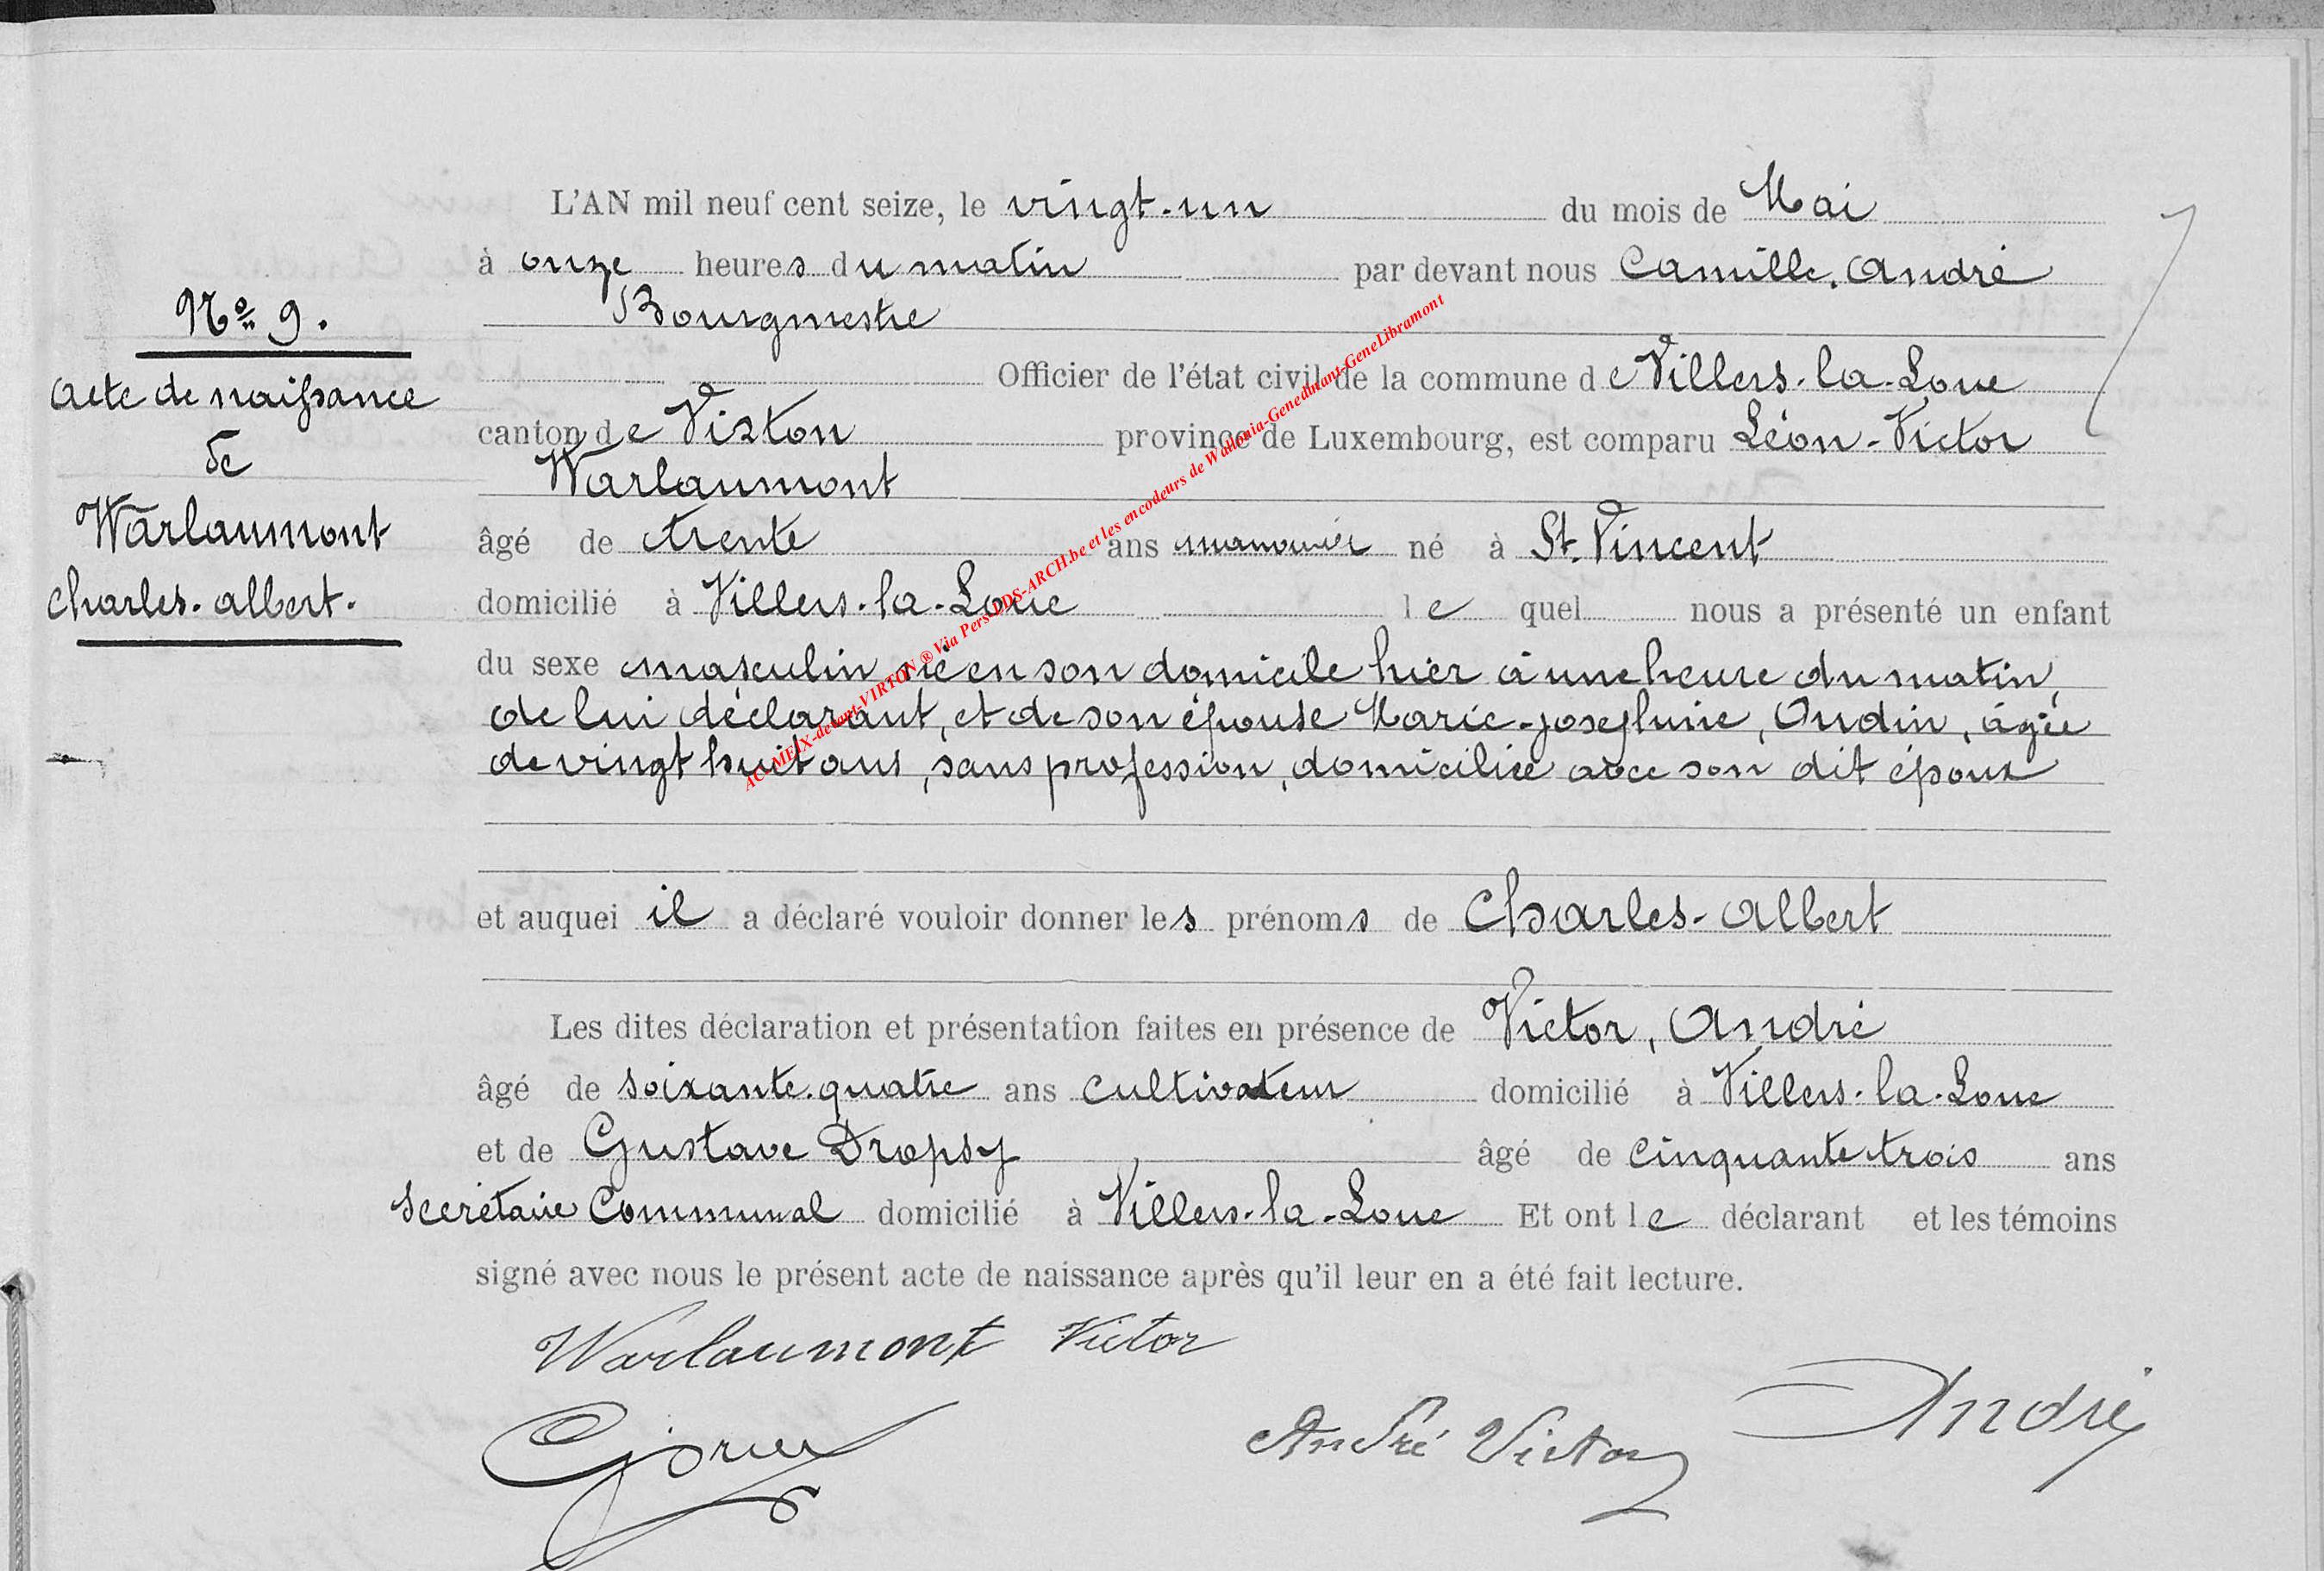 L'AN mil neuf cent seize, le vingt-un du mois de Mai
à onze heures du matin par devant nous Camille, André
Bourgmestre
Officier de l'état civil de la commune de Villers-la-Loue
canton de Virton province de Luxembourg, est comparu Léon-Victor
Warlaumont
âgé de trente ans manouvrier né à St. Vincent
domicilié à Villers-la-Loue lequel nous a présenté un enfant
du sexe masculin né en son domicile hier à une heure du matin,
de lui déclarant, et de son épouse Marie-Joséphine, Oudin, âgée
de vingt huit ans, sans profession, domiciliée avec son dit époux
et auquel il a déclaré vouloir donner les prénoms de Charles-Albert
Les dites déclaration et présentation faites en présence de Victor, André
âgé de soixante-quatre ans cultivateur domicilié à Villers-la-Loue
et de Gustave Dropsy âgé de cinquante trois ans
Secrétaire Communal domicilié à Villers-la-Loue Et ont le déclarant et les témoins
signé avec nous le présent acte de naissance après qu'il leur en a été fait lecture.
Warlaumont Victor
André Victor
André
No 9.
Acte de naissance
de
Warlaumont
Charles-Albert.
AC-MEIX-devant-VIRTON ® Via Pers-LDS-ARCH.be et les encodeurs de Wallonia-Genedinant-GeneLibramont